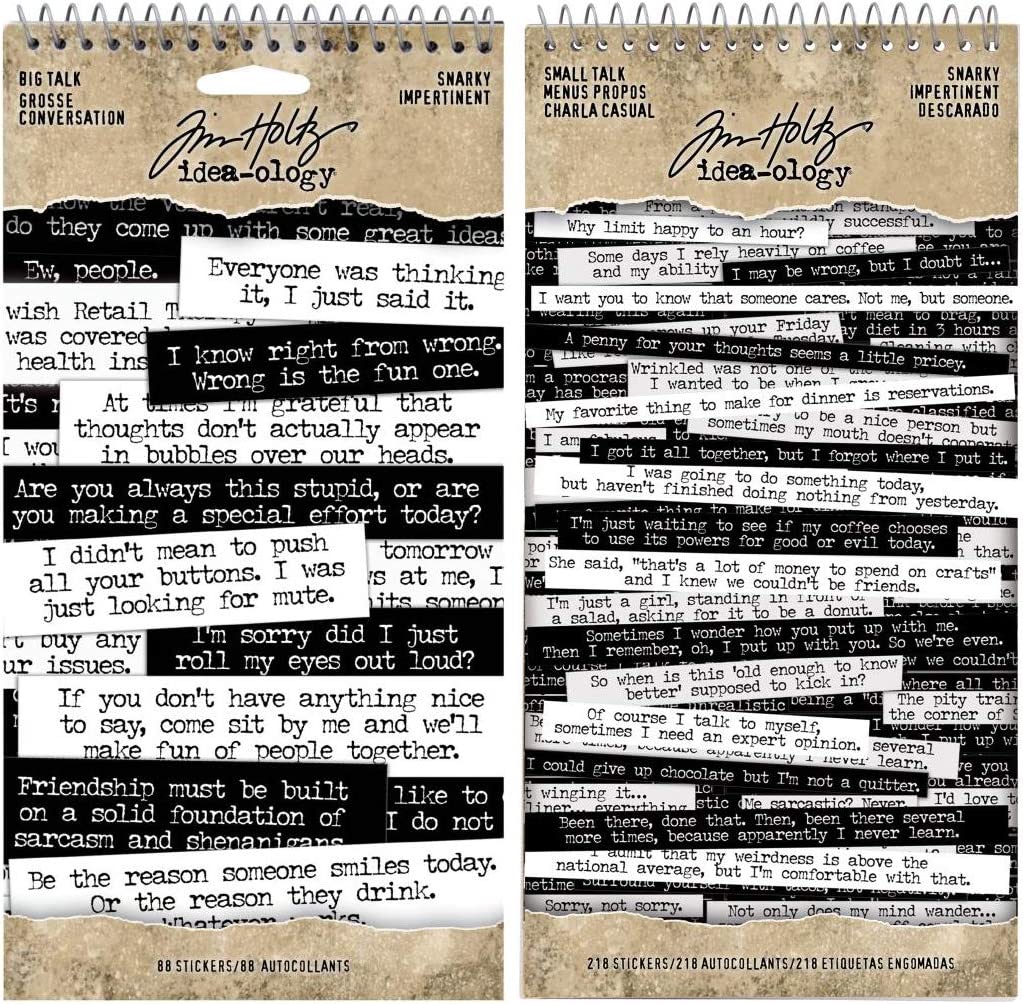 BIG TALK
GROSSE
CONVERSATION
SNARKY
IMPERTINENT
Tim Holtz
idea-ology
do they come up with some great ideas
Ew, people.
Everyone was thinking
it, I just said it.
wish Retail
was covered
health ins
I know right from wrong.
Wrong is the fun one.
At times I'm grateful that
thoughts don't actually appear
in bubbles over our heads.
I wou
Are you always this stupid, or are
you making a special effort today?
I didn't mean to push
all your buttons. I was
just looking for mute.
tomorrow
s at me, I
its someon
buy any
ur issues.
I'm sorry did I just
roll my eyes out loud?
If you don't have anything nice
to say, come sit by me and we'll
make fun of people together.
Friendship must be built
on a solid foundation of
sarcasm and shenanigans
like to
I do not
Be the reason someone smiles today.
Or the reason they drink.
Whatever works.
88 STICKERS/88 AUTOCOLLANTS
SMALL TALK
MENUS PROPOS
CHARLA CASUAL
SNARKY
IMPERTINENT
DESCARADO
Tim Holtz
idea-ology
From a
wildly successful.
Why limit happy to an hour?
Some days I rely heavily on coffee
and my ability
I may be wrong, but I doubt it...
I want you to know that someone cares. Not me, but someone.
wearing this again
mean to brag, but
up your Friday
Tuesday.
ay diet in 3 hours a
A penny for your thoughts seems a little pricey.
Wrinkled was not one of the
I wanted to be when I grew
a procras
ay has been
My favorite thing to make for dinner is reservations.
to be a nice person but
sometimes my mouth doesn't cooperate
classified a
I am fabulous
I got it all together, but I forgot where I put it.
I was going to do something today,
but haven't finished doing nothing from yesterday.
would
I'm just waiting to see if my coffee chooses
to use its powers for good or evil today.
that.
She said, "that's a lot of money to spend on crafts"
and I knew we couldn't be friends.
I'm just a girl, standing in front of
a salad, asking for it to be a donut.
Sometimes I wonder how you put up with me.
Then I remember, oh, I put up with you. So we're even.
ew we couldn't
So when is this 'old enough to know
better' supposed to kick in?
where all thi
unrealistic
being a "di
The pity trai
the corner of S
Of course I talk to myself,
sometimes I need an expert opinion.
several
more times, because apparently I never learn.
I could give up chocolate but I'm not a quitter.
ve you
already
winging it...
liner... everything
Me sarcastic? Never.
I'd love t
Been there, done that. Then, been there several
more times, because apparently I never learn.
I admit that my weirdness is above the
national average, but I'm comfortable with that.
Surround yourself with tacos, not negativity
Sorry, not sorry.
Not only does my mind wander...
218 STICKERS/218 AUTOCOLLANTS/218 ETIQUETAS ENGOMADAS